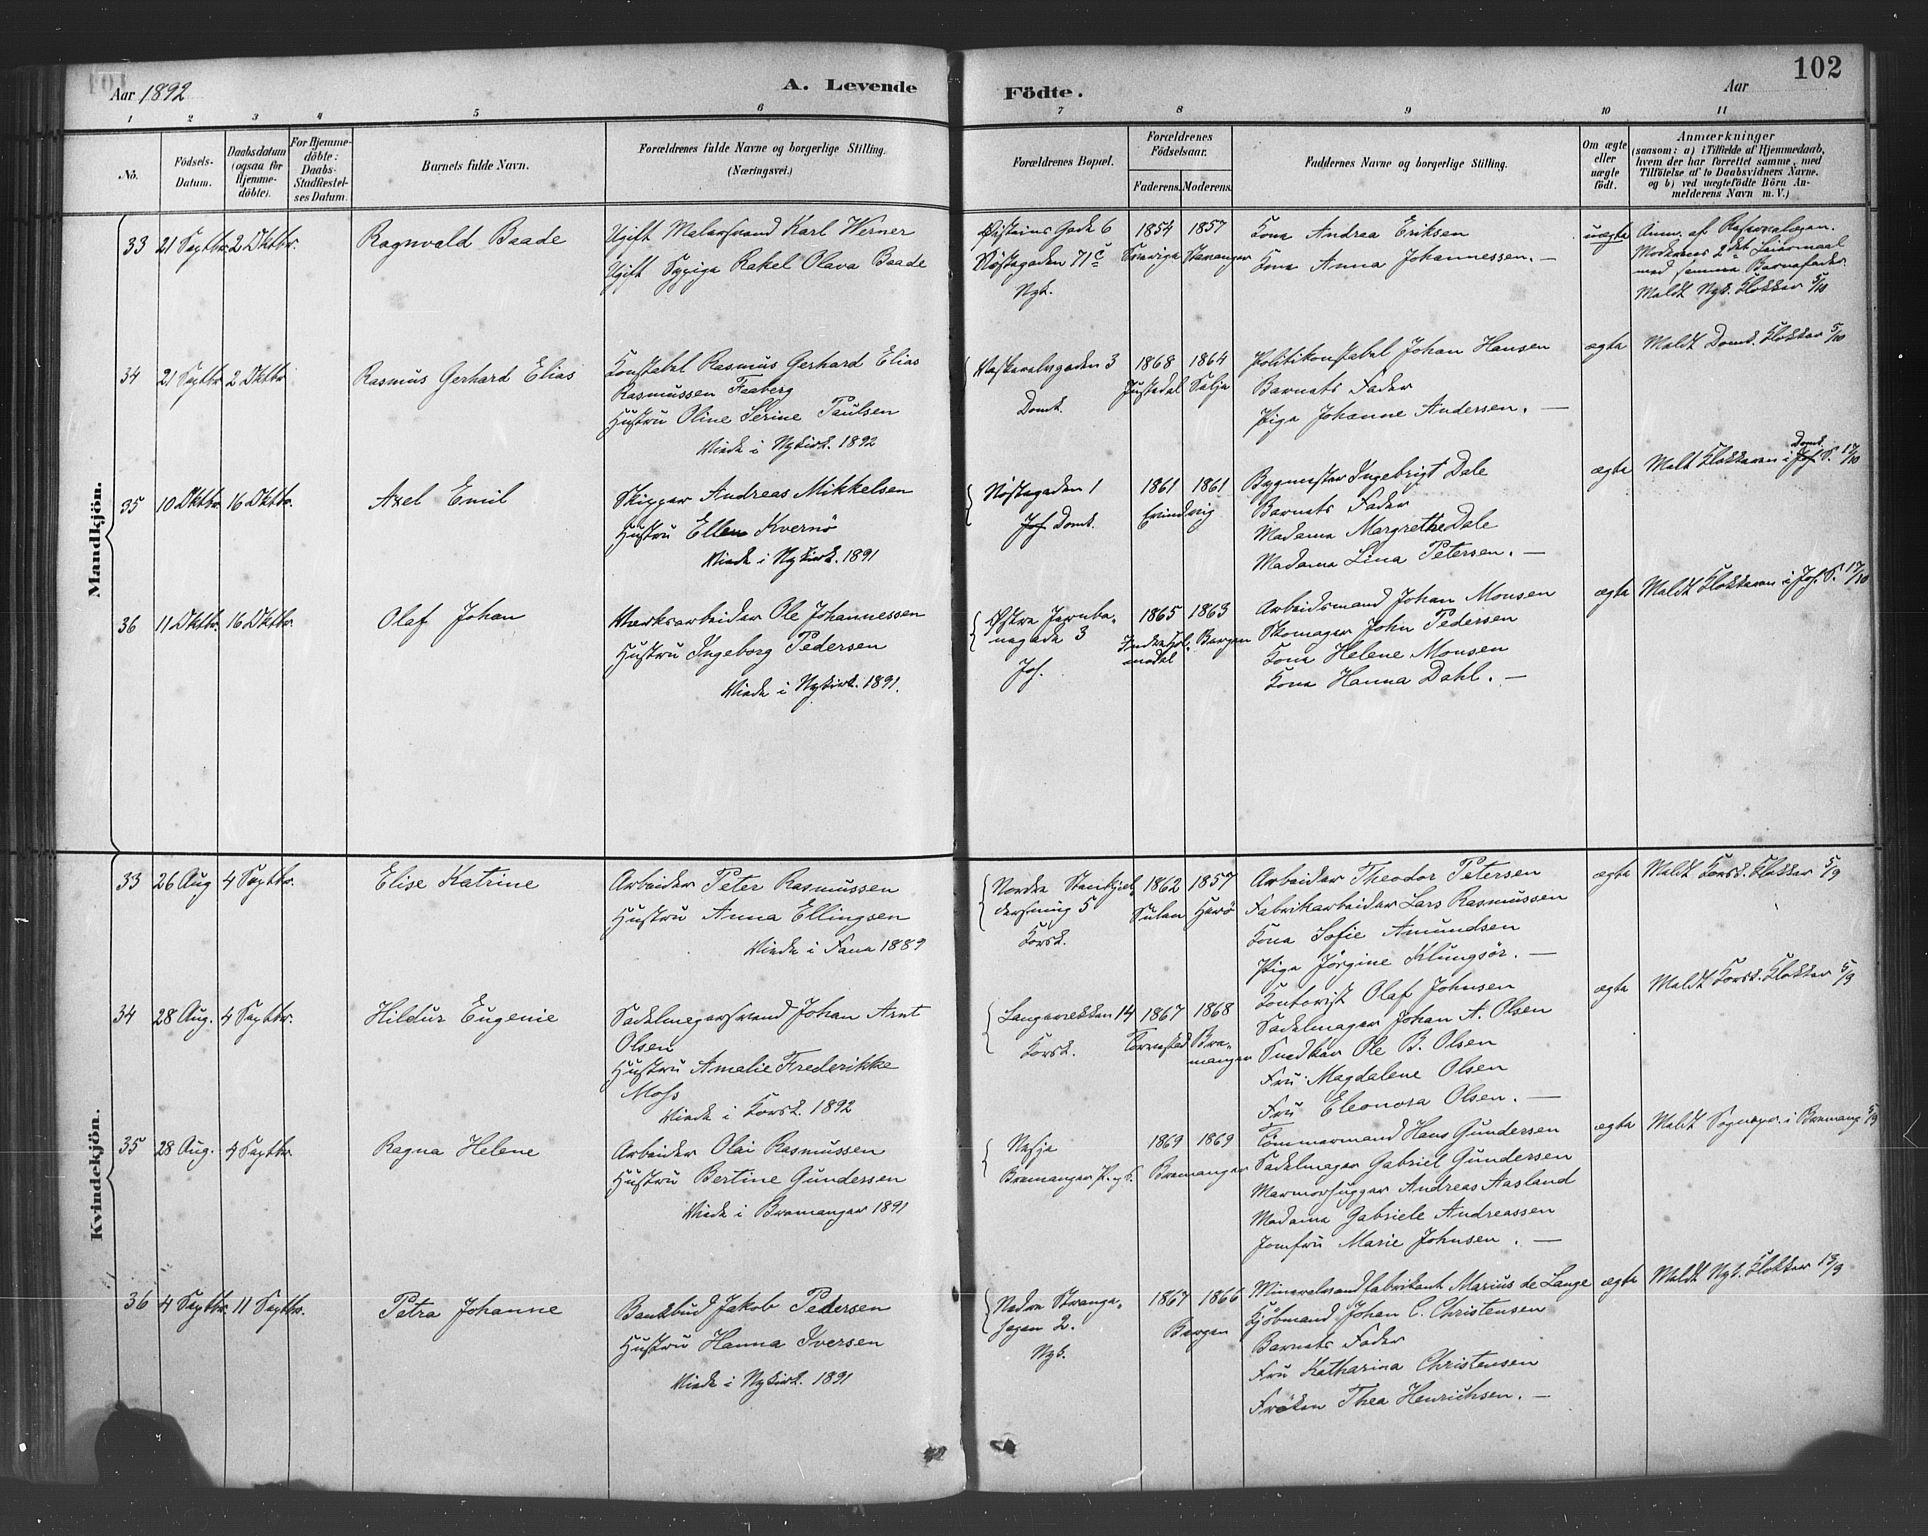 101
Aar 1892
A. Levende
Födte.
Aar
102
1 2 3 4 5 6 7 8 9 10 11
No.
Födsels-
Datum.
Daabsdatum
(ogsaa for
Hjemme-
döbte).
For Hjemme-
döbte:
Daabs-
Stadfæstel-
ses Datum.
Barnets fulde Navn.
Forældrenes fulde Navne og borgerlige Stilling.
(Næringsvei.)
Forældrenes Bopæl.
Forældrenes
Födselsaar.
Faderens.
Moderens.
Faddernes Navne og borgerlige Stilling.
Om ægte
eller
uægte
födt.
Anmærkninger
(saasom: a) i Tilfælde af Hjemmedaab,
hvem der har forrettet samme, med
Tilföielse af to Daabsvidners Navne.
og b) ved uægtefödte Börn An-
melderens Navn m. V.)
Mandkjön.
33 21 Septbr. 2 Oktbr. Ragnvald Baade
Ugift Malersvend Karl Werner
Ugift Sypige Rakel Olava Baade
Øisteins Gade 6
Nøstegaden 71 c
Nyk.
1854 1857
Sverige Stavanger
Kone Andrea Eriksen
Kone Anna Johannessen. —
uægte
Anm. af Reservelægen.
Moderens 2det Leiermaal
med samme Barnefader.
Meldt Nyk. Klokker 5/10
34 21 Septbr. 2 Oktbr. Rasmus Gerhard Elias
Konstabel Rasmus Gerhard Elias
Rasmussen Faaberg
Hustru Oline Serine Paulsen
Viede i Nykirk. 1892
Vaskerelvsgaden 3
Domk.
1868 1864
Justedal Selje
Politikonstabel Johan Hansen
Barnets Fader
Pige Johanne Andersen. —
ægte
Meldt Domk. Klokker 5/10
35 10 Oktbr. 16 Oktbr. Axel Emil
Skipper Andreas Mikkelsen
Hustru Ellen Kvernø
Viede i Nykirk. 1891
Nøstegaden 1
Joh Domk.
1861 1861
Evindvig
Bygmester Ingebrigt Dale
Barnets Fader
Madame Margrethe Dale
Madame Lina Petersen. —
ægte
Domk.
Meldt Klokkeren i Joh S. 17/10
36 11 Oktbr. 16 Oktbr. Olaf Johan
Værksarbeider Ole Johannessen
Hustru Ingeborg Pedersen
Viede i Nykirk. 1891.
Østre Jernba-
negade 3
Joh.
1865 1863
Indre Hol-
medal Bergen
Arbeidsmand Johan Monsen
Skomager John Pedersen
Kone Helene Monsen
Kone Hanna Dahl. —
ægte
Meldt Klokkeren i Joh. S. 17/10
Kvindekjön.
33 26 Aug 4 Septbr. Elise Katrine
Arbeider Peter Rasmussen
Hustru Anna Ellingsen
Viede i Fana 1889
Nordre Stenkjel-
dersmug 5
Korsk.
1862 1857
Sulen Herö
Arbeider Theodor Petersen
Fabrikarbeider Lars Rasmussen
Kone Sofie Amundsen
Pige Jörgine Klungsör. —
ægte
Meldt Korsk. Klokker 5/9
34 28 Aug. 4 Septbr. Hildur Eugenie
Sadelmagersvend Johan Arnt
Olsen
Hustru Amalie Frederikke
Moss
Viede i Korsk. 1892
Langevekken 14
Korsk.
1867 1868
Bre-
manger
Kontorist Olaf Johnsen
Sadelmager Johan A. Olsen
Snedker Ole B. Olsen
Fru Magdalene Olsen
Fru Eleonora Olsen. —
ægte
Meldt Korsk. Klokker 5/9
35 28 Aug. 4 Septbr. Ragna Helene
Arbeider Olai Rasmussen
Hustru Bertine Gundersen
Viede i Bremanger 1891
Nesje
Bremanger P. og S.
1869 1869
Bremanger
Tømmermand Hans Gundersen
Sadelmager Gabriel Gundersen
Marmorhugger Andreas Aasland
Madame Gabriele Andreassen
Jomfru Marie Johnsen. —
ægte
Meldt Sognepr. i Bremang. 5/9
36 4 Septbr. 11 Septbr. Petra Johanne
Bankbud Jakob Pedersen
Hustru Hanna Iversen
Viede i Nykirk. 1891
Nedre Strange-
hagen 2.
Nyk.
1867 1866
Bergen
Mineralvandfabrikant Marius de Lange
Kjöbmand Johan C. Christensen
Barnets Fader
Fru Katharina Christensen
Frøken Thea Henrichsen. —
ægte
Meldt Nyk. Klokker 13/9